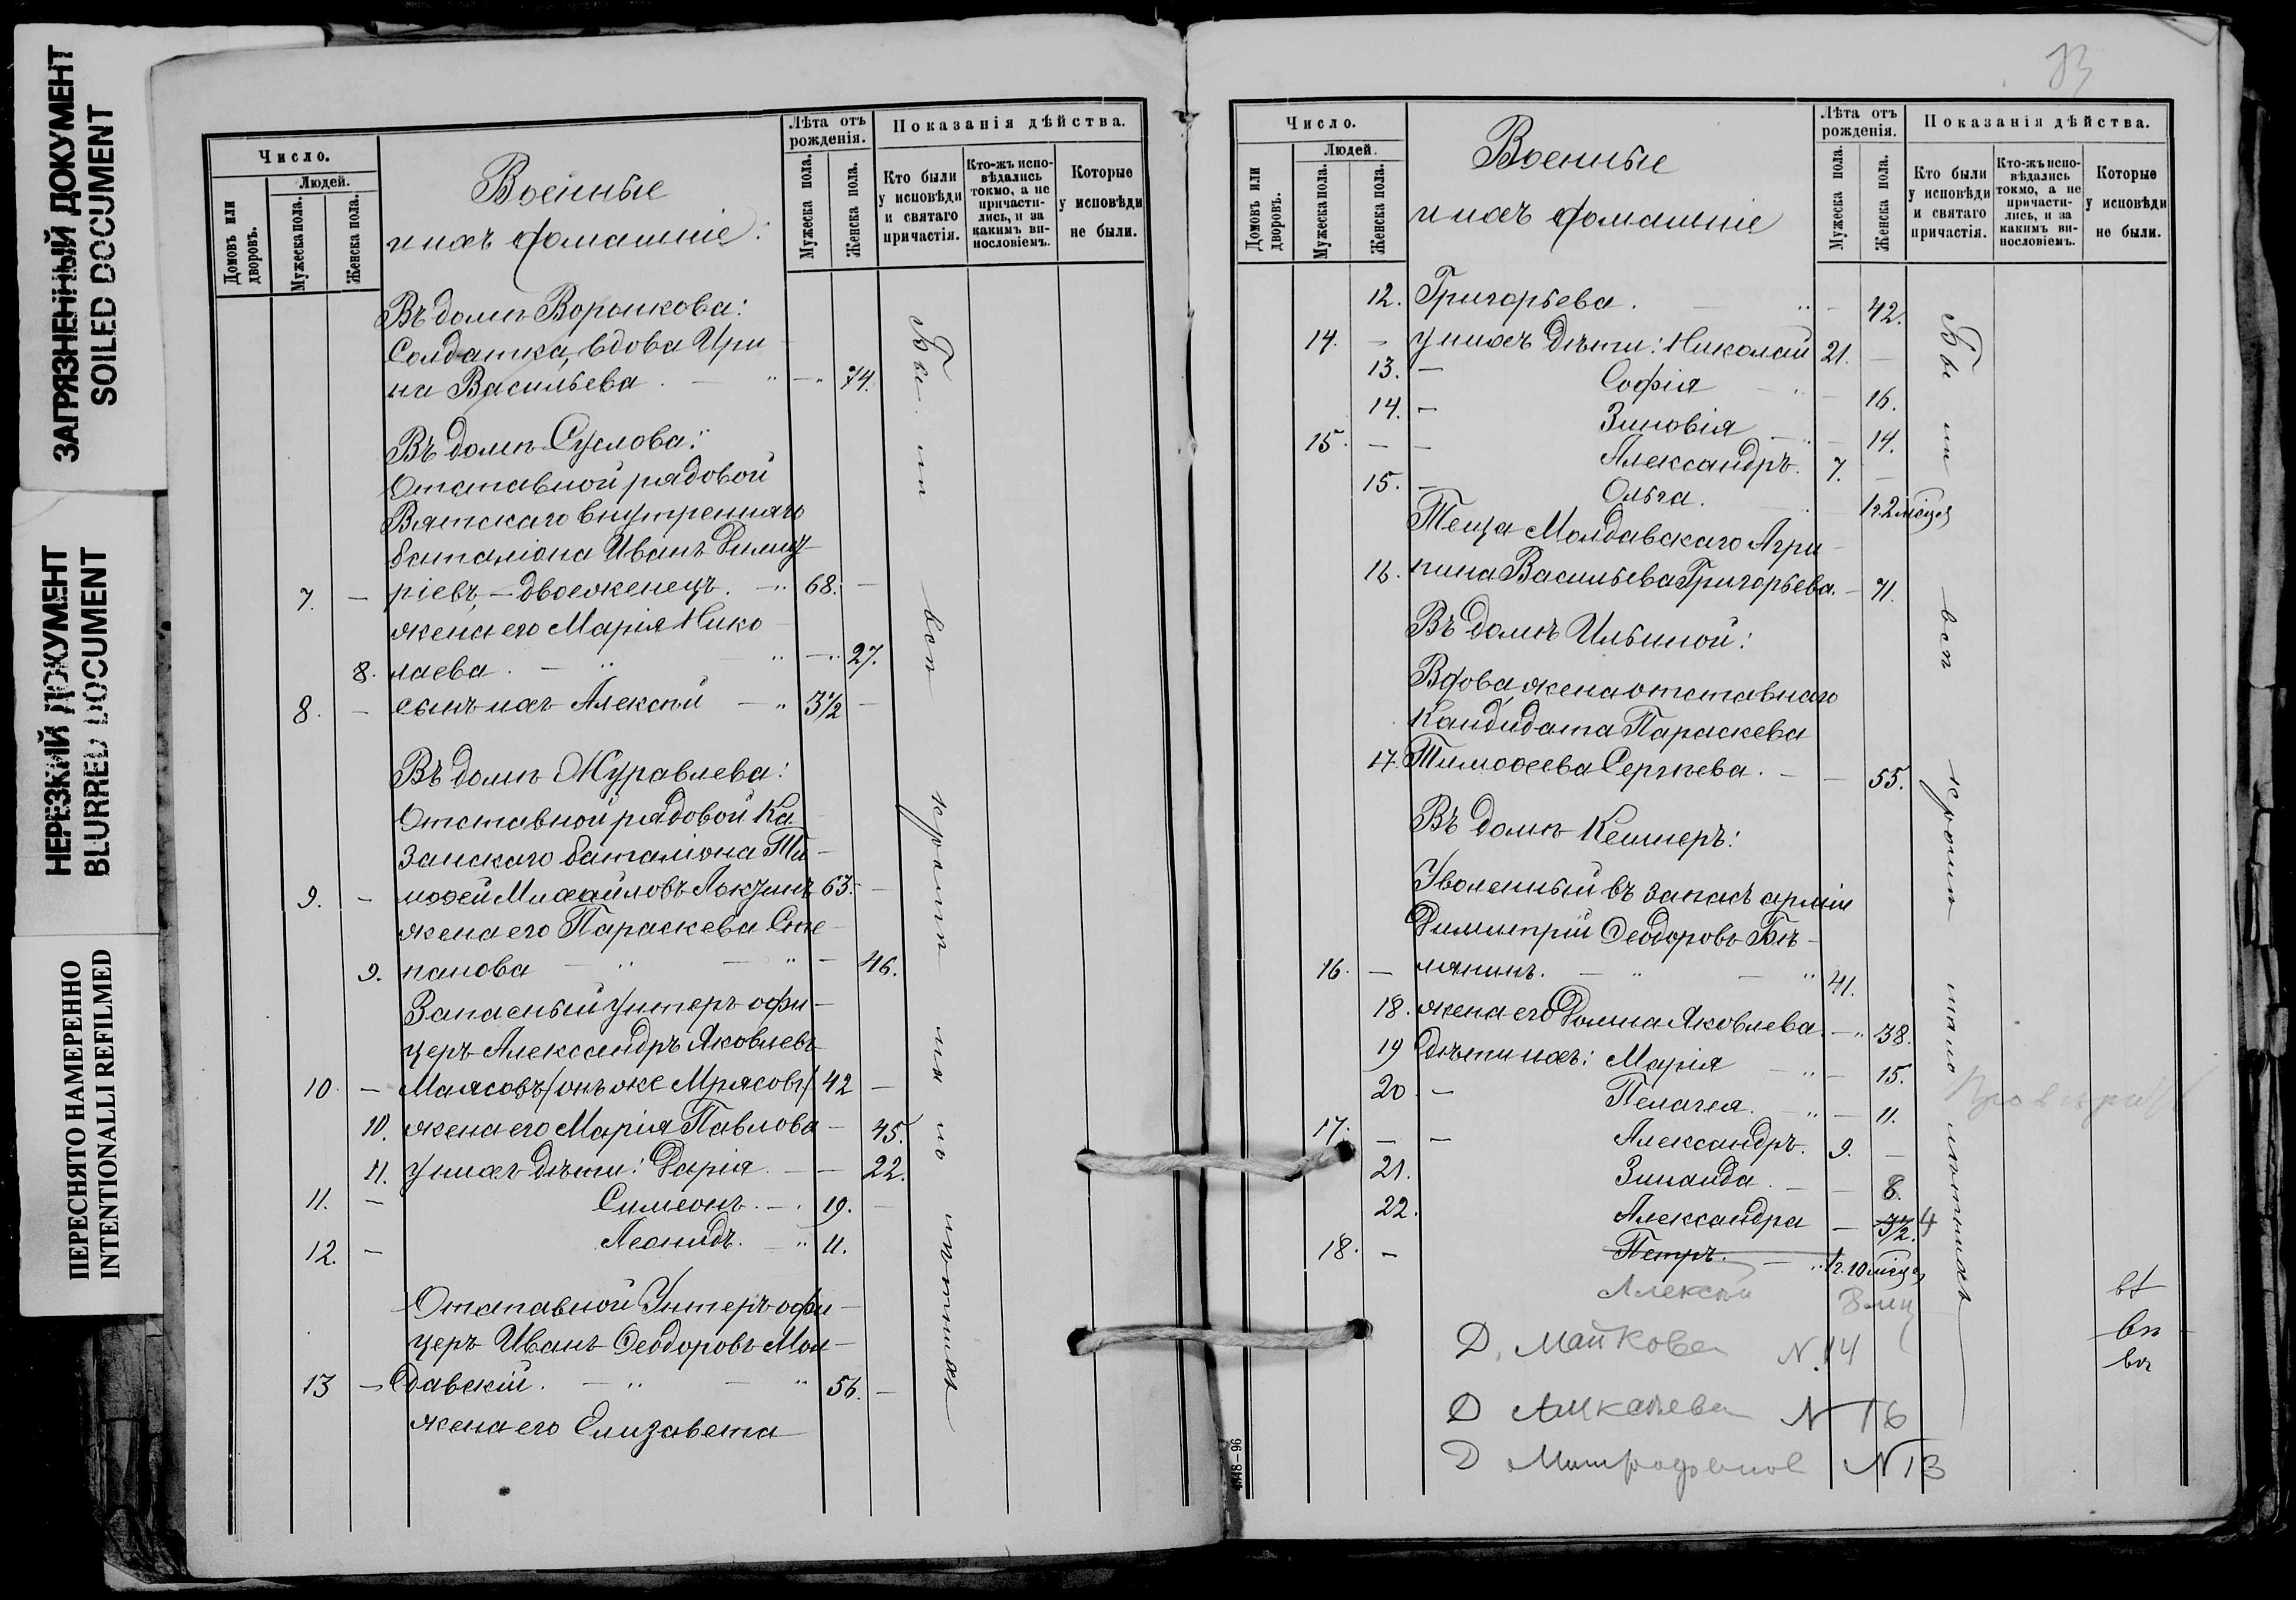 ЗАГРЯЗНЕННЫЙ ДОКУМЕНТ
SOILED DOCUMENT
НЕРЕЗКИЙ ДОКУМЕНТ
BLURRED DOCUMENT
ПЕРЕСНЯТО НАМЕРЕННО
INTENTIONALLI REFILMED
Число.
Людей.
Домовъ или дворовъ.
Мужеска пола.
Женска пола.
Военные
и ихъ домашніе:
Лѣта отъ рожденія.
Мужеска пола.
Женска пола.
Показанія дѣйства.
Кто были у исповѣди и святаго причастія.
Кто-жъ исповѣдались токмо, а не причастились, и за какимъ винословіемъ.
Которые у исповѣди не были.
Въ домѣ Воронкова:
Солдатка, вдова Ири
на Васильева. — 74.
Въ домѣ Суслова:
Отставной рядовой
Вятскаго внутренняго
баталіона Иванъ Димит
7. — ріевъ, — двоеженецъ. — 68. —
жена его Марія Нико
8. лаева. — 27.
8. — сынъ ихъ Алексѣй — 3½ —
Въ домѣ Журавлева:
Отставной рядовой Ка
занскаго баталіона Ти-
9. — моѳей Михайловъ Локзинъ 63. —
жена его Параскева Сте
9. панова — 46.
Запасный Унтеръ офи-
церъ Александръ Яковлевъ
10. — Маясовъ /онъ же Мрясовъ/ 42 —
10. жена его Марія Павлова — 45.
11. У нихъ дѣти: Дарія. — 22.
11. — Симеонъ. — 19. —
12. — Леонидъ. 11.
Отставной Унтеръ офи-
церъ Иванъ Ѳеодоровъ Мол-
13 — давскій. — 56. —
жена его Елизавета
Бы ли всѣ кромѣ мало лѣтнихъ
Число.
Людей.
Домовъ или дворовъ.
Мужеска пола.
Женска пола.
Военные
и ихъ домашніе
Лѣта отъ рожденія.
Мужеска пола.
Женска пола.
Показанія дѣйства.
Кто были у исповѣди и святаго причастія.
Кто-жъ исповѣдались токмо, а не причастились, и за какимъ винословіемъ.
Которые у исповѣди не были.
12. Григорьева. — 42.
14. — У нихъ дѣти: Николай 21. —
13. — Софія — 16.
14. — Зиновія — 14.
15. — — Александръ. 7. —
15. — Ольга. 1г. 2 мѣсяц
Теща Молдавскаго Агри
16. пина Васильева Григорьева. — 71.
Въ домѣ Ильиной:
Вдова жена отставнаго
Кандидата Параскева
17. Тимоѳеева Сергѣева. — 55.
Въ домѣ Кешнеръ:
Уволенный въ запасъ арміи
Димитрій Ѳеодоровъ Бѣ-
16. — лянинъ. — 41.
18. жена его Домна Яковлева. — 38.
19 дѣти ихъ: Марія — 15.
20 — Пелагея. — 11.
17. — — Александръ. 9. —
21. Зинаида. — 8.
22. Александра — 3½. 4
18. — Петръ. — 1г. 10 мѣсяц
Алексѣй 8 мц
Д. Майкова N. 14
Д N 16
Д Митрофанов N 13
Бы ли всѣ кромѣ мало лѣтнихъ
4848—96